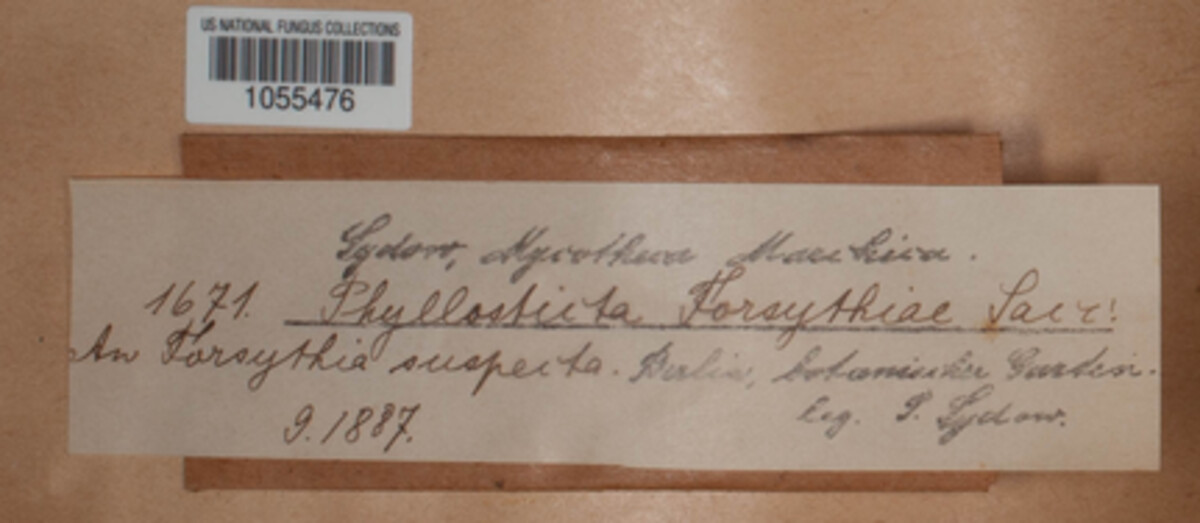 US NATIONAL FUNGUS COLLECTIONS
1055476
Sydow, Mycotheca Marchica.
1671. Phyllosticta Forsythiae Sacc!
An Forsythia suspecta. Berlin, botanischer Garten.
9.1887. leg. P. Sydow.